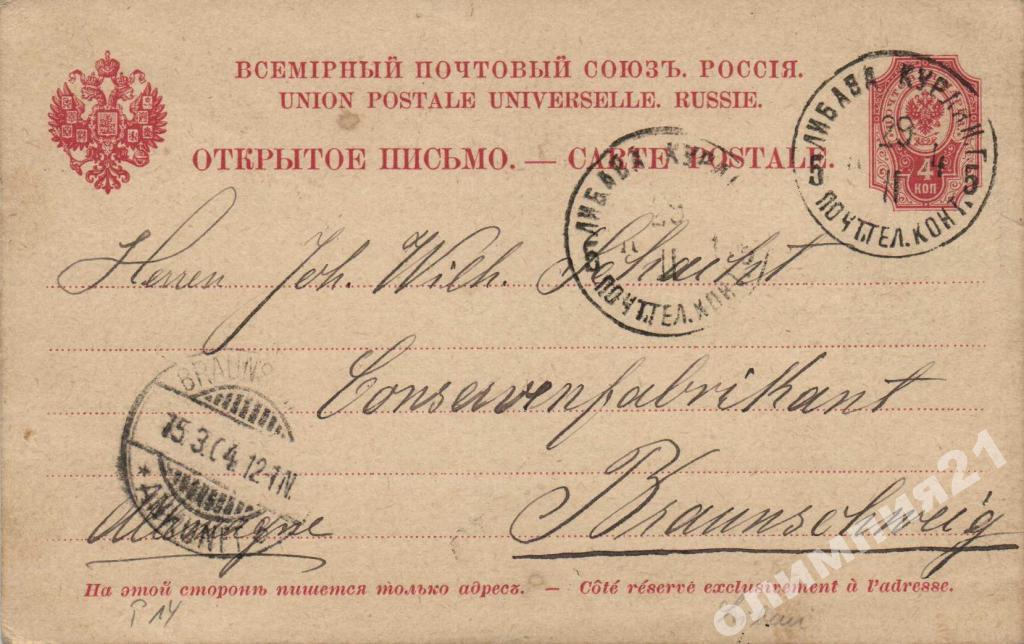 ВСЕМІРНЫЙ ПОЧТОВЫЙ СОЮЗЪ. РОССІЯ.
UNION POSTALE UNIVERSELLE. RUSSIE.
ОТКРЫТОЕ ПИСЬМО. — CARTE POSTALE.
4 КОП
ЛИБАВА КУРЛЯН. Г.
29
II 4
5 5
ПОЧТ.ТЕЛ.КОНТ.
ЛИБАВА
29
II
ПОЧТ.ТЕЛ.КОН
Herren Joh. Wilh. Schacht
Conservenfabrikant
Braunschweig
Allemagne
BRAUNS
15.3.04.12-1N.
* ANKUNFT
На этой сторонѣ пишется только адресъ. — Côté réservé exclusivement à l'adresse.
P 14
олимпия21